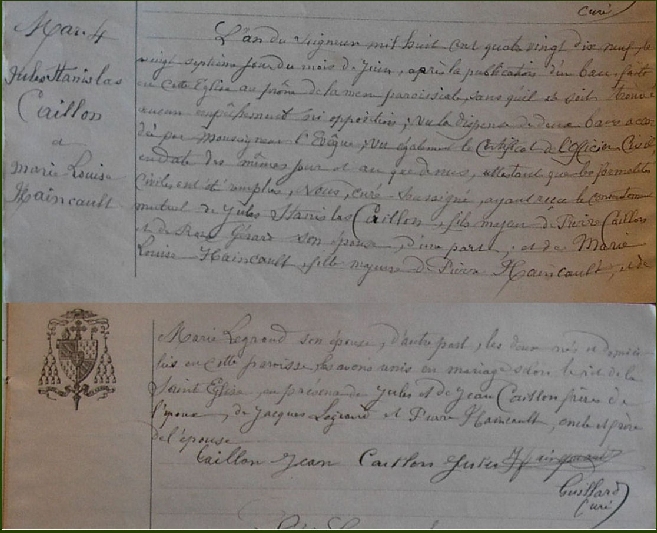 curé
Mar. 4
Jules Stanislas
Caillon
et
Marie Louise
Haincault
L'an du Seigneur mil huit cent quatre vingt dix neuf, le
vingt septième jour du mois de Juin, après la publication d'un ban, faite
en cette Eglise au prône de la messe paroissiale, sans qu'il se soit trouvé
aucun empêchement ni opposition; vu la dispense de deux bans accor-
dée par Monseigneur l'Evêque; vu également le Certificat de l'Officier Civil
en date des mêmes jour et an que dessus, attestant que les formalités
civiles ont été remplies, Nous, curé soussigné, ayant reçu le consentement
mutuel de Jules Stanislas Caillon, fils majeur de Pierre Caillon
et de Rose Gérard son épouse, d'une part; et de Marie
Louise Haincault, fille majeure de Pierre Haincault, et de
Marie Legrand son épouse, d'autre part, les deux nés et domici-
liés en cette paroisse, les avons unis en mariage selon le rit de la
Sainte Eglise, en présence de Jules et de Jean Caillon frères de
l'époux, de Jacques Legrand et Pierre Haincault, oncle et père
de l'épouse
Caillon Jean Caillon Jules
Guillard
Curé